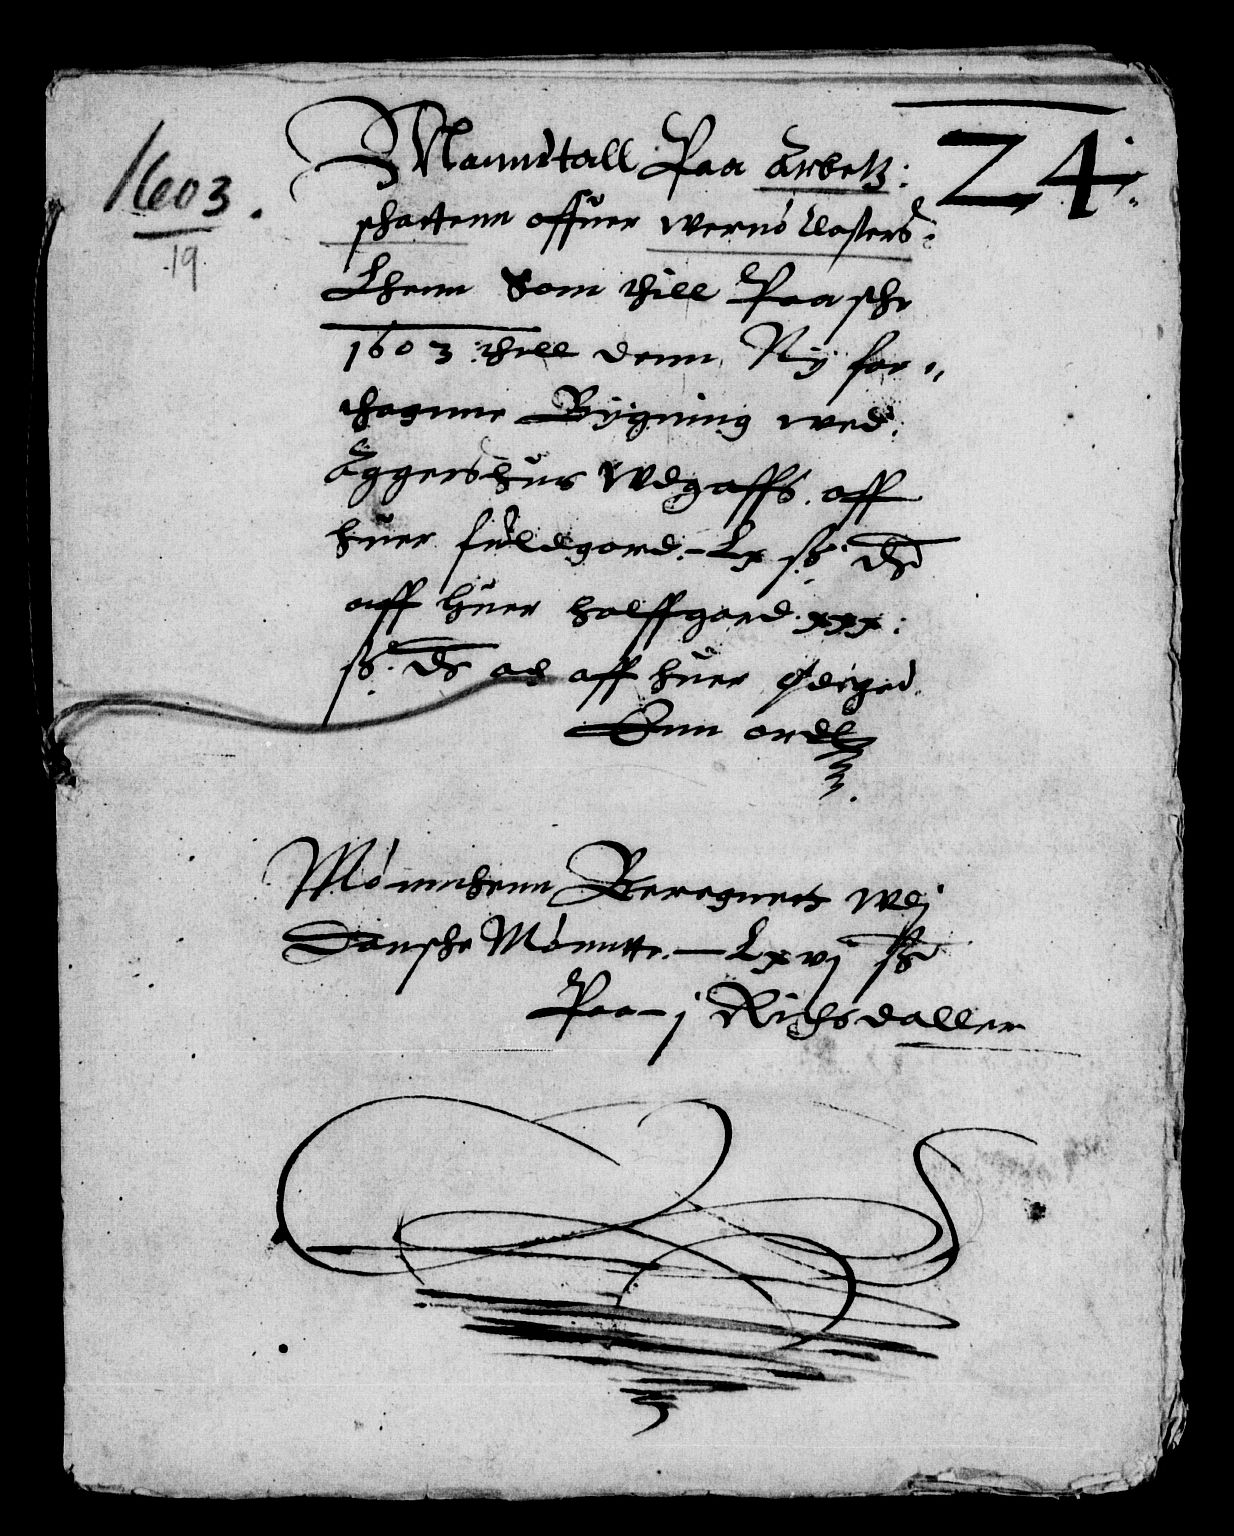 1603.
19
24.
Manndtall Paa Arbetz:
schattenn offuer wernö Closters
Lhenn Som thill Paasche
1603 thill denn Ny for„
thagnne Bygning wed
Aggershus Wdgaffs. aff
huer fuldgord.– Lx sß: d
aff huer halffgord xxx:
sß. d och aff huer ødegord.
Enn ordt
Mönnthenn Beregnett wdj
Danske Möntte.– Lxvj sß
Paa– j Richsdaller